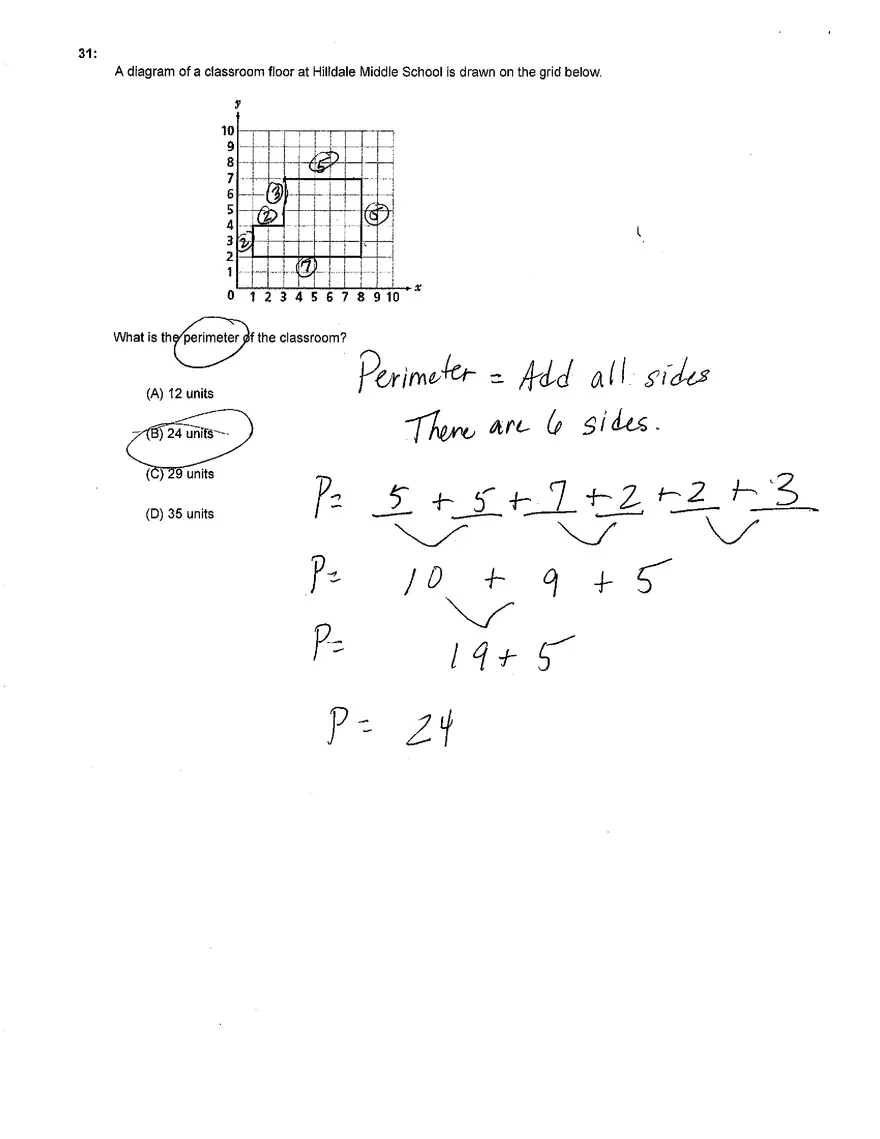 31:
A diagram of a classroom floor at Hilldale Middle School is drawn on the grid below.
y
10
9
8
7
6
5
4
3
2
1
5
3
2
5
2
7
0 1 2 3 4 5 6 7 8 9 10 x
What is the perimeter of the classroom?
(A) 12 units
(B) 24 units
(C) 29 units
(D) 35 units
Perimeter = Add all sides
There are 6 sides.
P= 5 + 5 + 7 + 2 + 2 + 3
P= 10 + 9 + 5
P= 19 + 5
P= 24